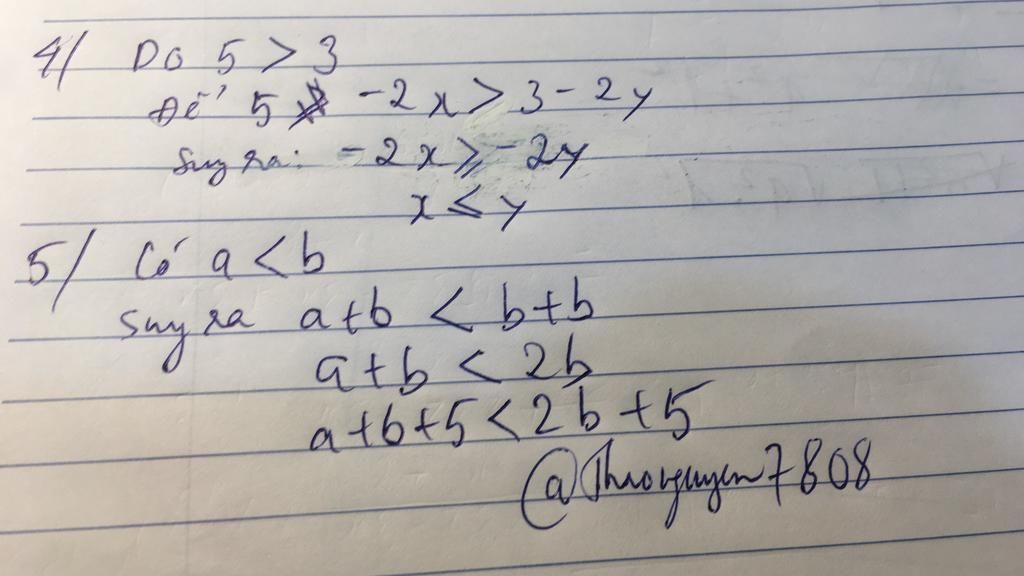 4/ Do 5 > 3
Để 5 -2x > 3 - 2y
Suy ra: -2x ≥ -2y
x ≤ y
5/ Có a < b
Suy ra a+b < b+b
a+b < 2b
a+b+5 < 2b+5
@Thaonguyen7808